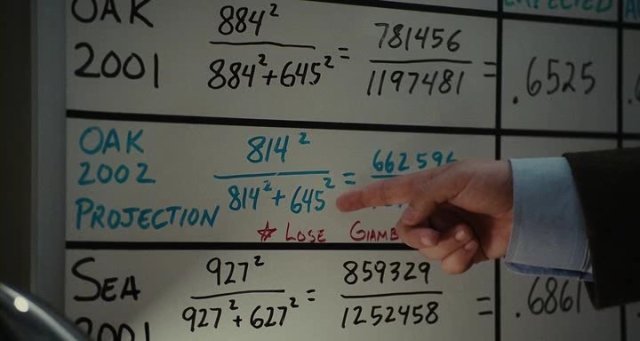 OAK
2001
884² / 884²+645² = 781456 / 1197481 = .6525
OAK
2002
PROJECTION
814² / 814²+645² = 662596
* LOSE GIAMB
SEA
2001
927² / 927²+627² = 859329 / 1252458 = .6861